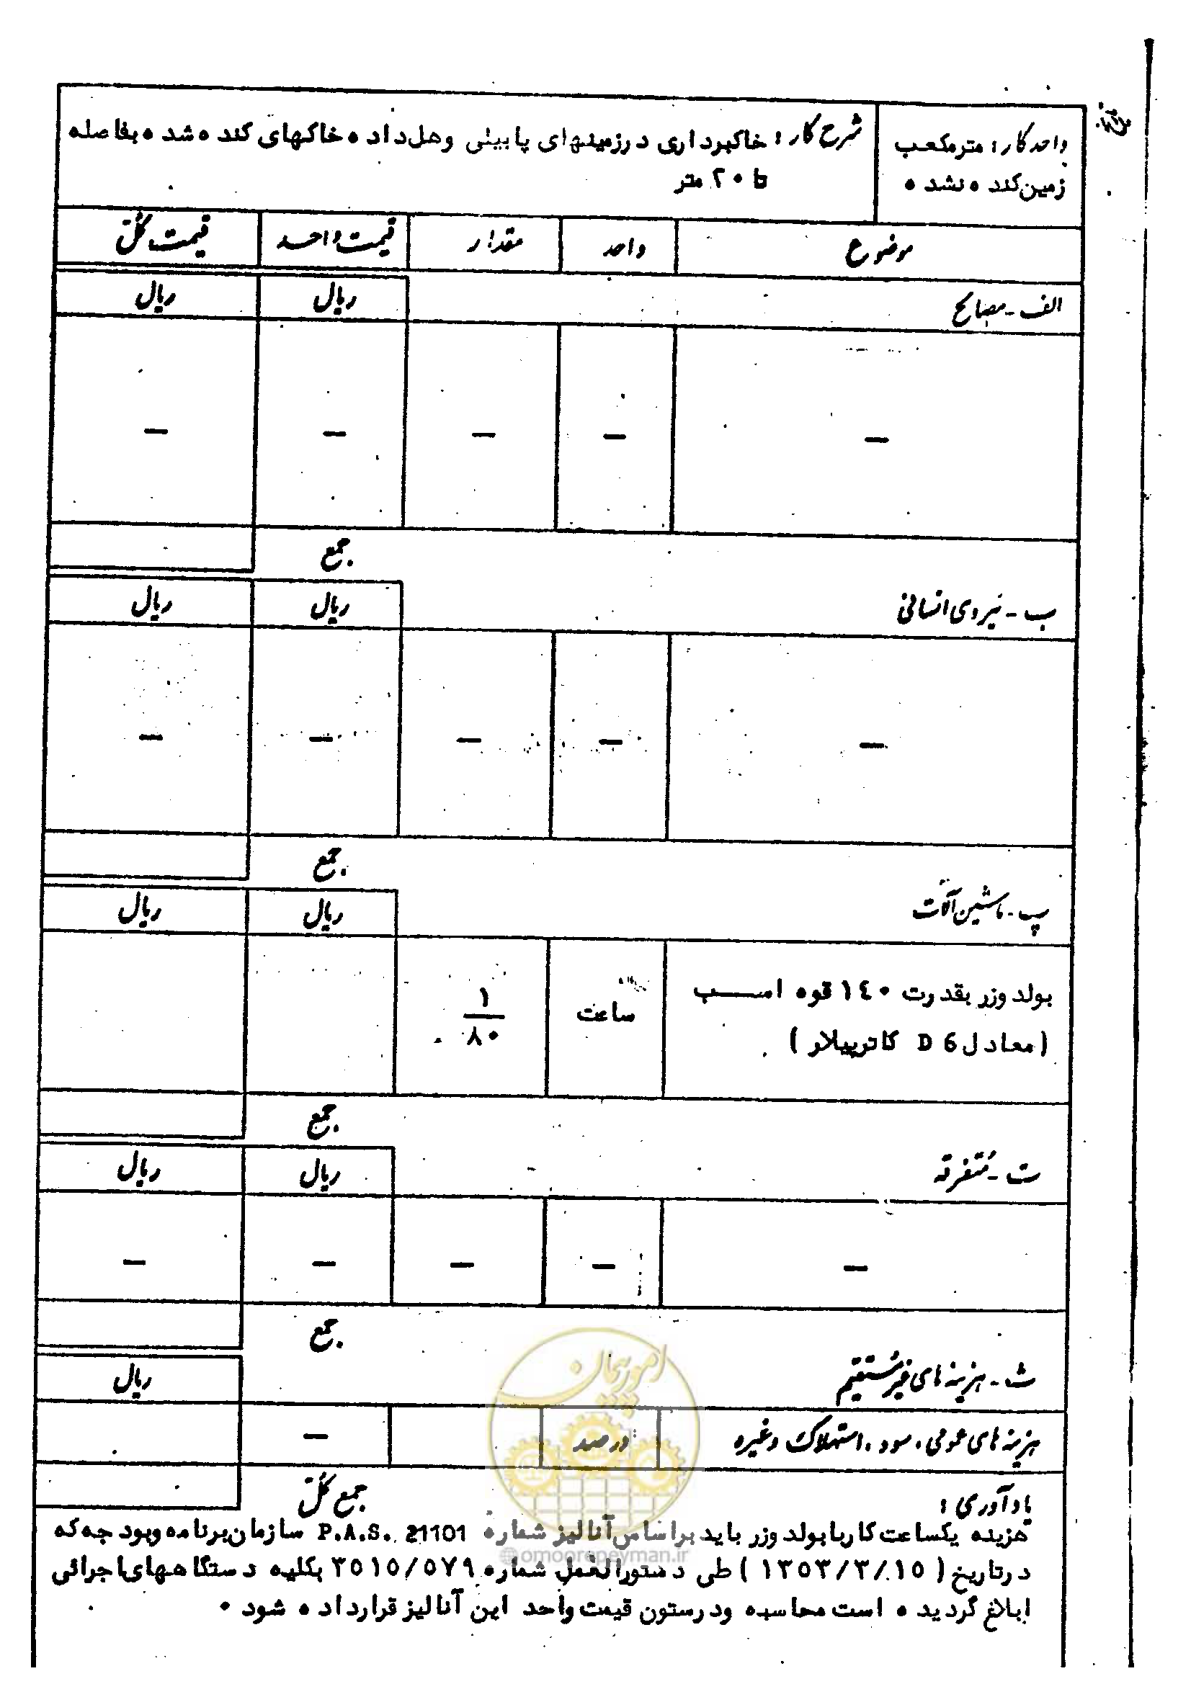 واحد کار : مترمکعب
زمین کنده نشده
شرح کار : خاکبرداری در زمینهای پابیلی وهل داده خاکهای کنده شده بفاصله
تا ۲۰ متر
موضوع واحد مقدار قیمت واحد قیمت کل
الف - مصالح ریال ریال
— — — — —
جمع
ب - نیروی انسانی ریال ریال
— — — — —
جمع
پ - ماشین آلات ریال ریال
بولد وزر بقدرت ۱۴۰ قوه اسب ساعت ۱/۸۰
(معادل D 6 کاترپیلار )
جمع
ت - متفرقه ریال ریال
— — — — —
جمع
ث - هزینه های غیرمستقیم ریال
هزینه های عمومی ، سود ، استهلاک وغیره درصد —
جمع کل
یادآوری :
هزینه یکساعت کار با بولد وزر باید براساس آنالیز شماره P.A.S. 21101 سازمان برنامه وبودجه که
در تاریخ ( ۱۳۵۳/۳/۱۵ ) طی دستورالعمل شماره ۳۵۱۵/۵۷۹ بکلیه دستگاههای اجرائی
ابلاغ گردیده است محاسبه ودرستون قیمت واحد این آنالیز قرارداده شود ۰
امور پیمان
@omoorepeyman.ir